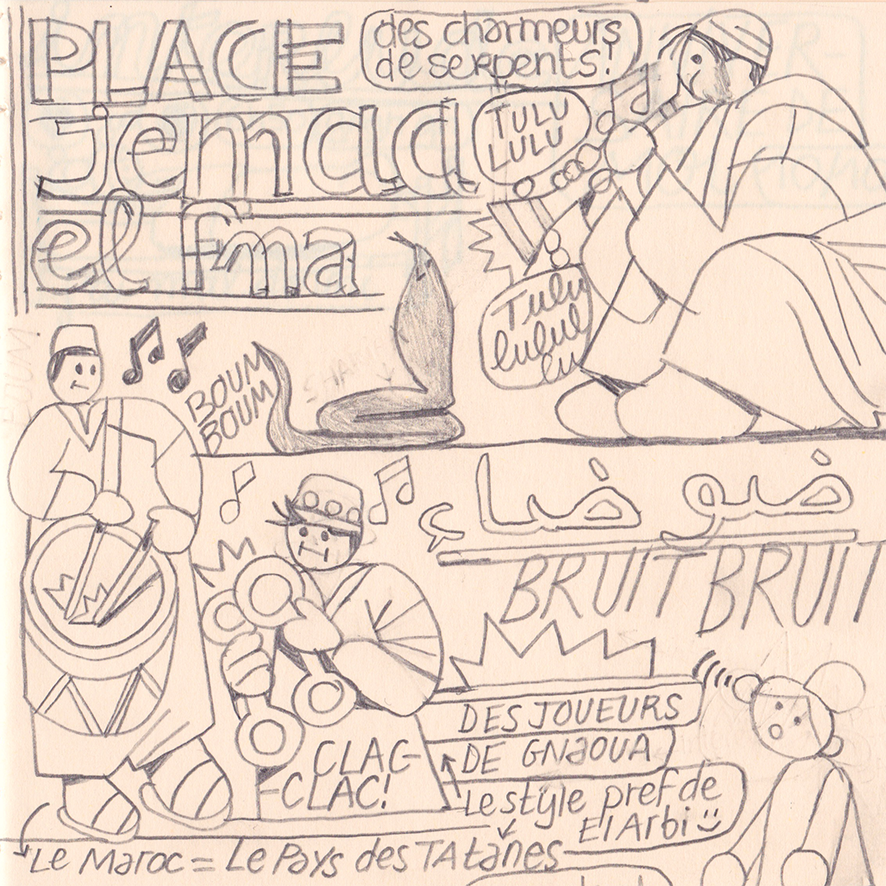 PLACE
jemaa
el fna
des charmeurs
de serpents!
TULU
LULU
Tulu
lulul
lu
BOUM
BOUM
ضوضاء
BRUIT BRUIT
DES JOUEURS
DE GNAOUA
Le style pref de
El Arbi
CLAC-
-CLAC!
Le Maroc = Le Pays des TAtanes